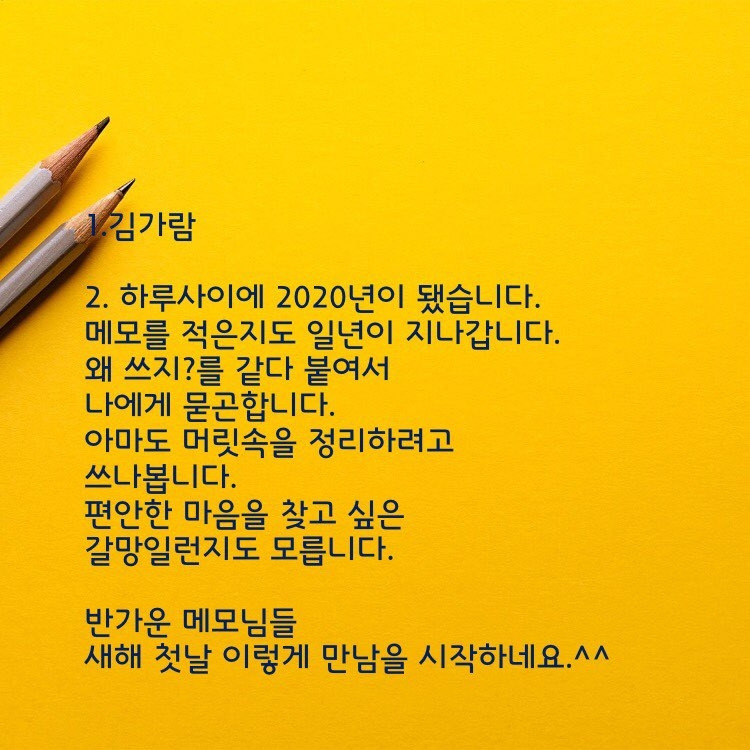 1.김가람
2. 하루사이에 2020년이 됐습니다.
메모를 적은지도 일년이 지나갑니다.
왜 쓰지?를 같다 붙여서
나에게 묻곤합니다.
아마도 머릿속을 정리하려고
쓰나봅니다.
편안한 마음을 찾고 싶은
갈망일런지도 모릅니다.
반가운 메모님들
새해 첫날 이렇게 만남을 시작하네요.^^